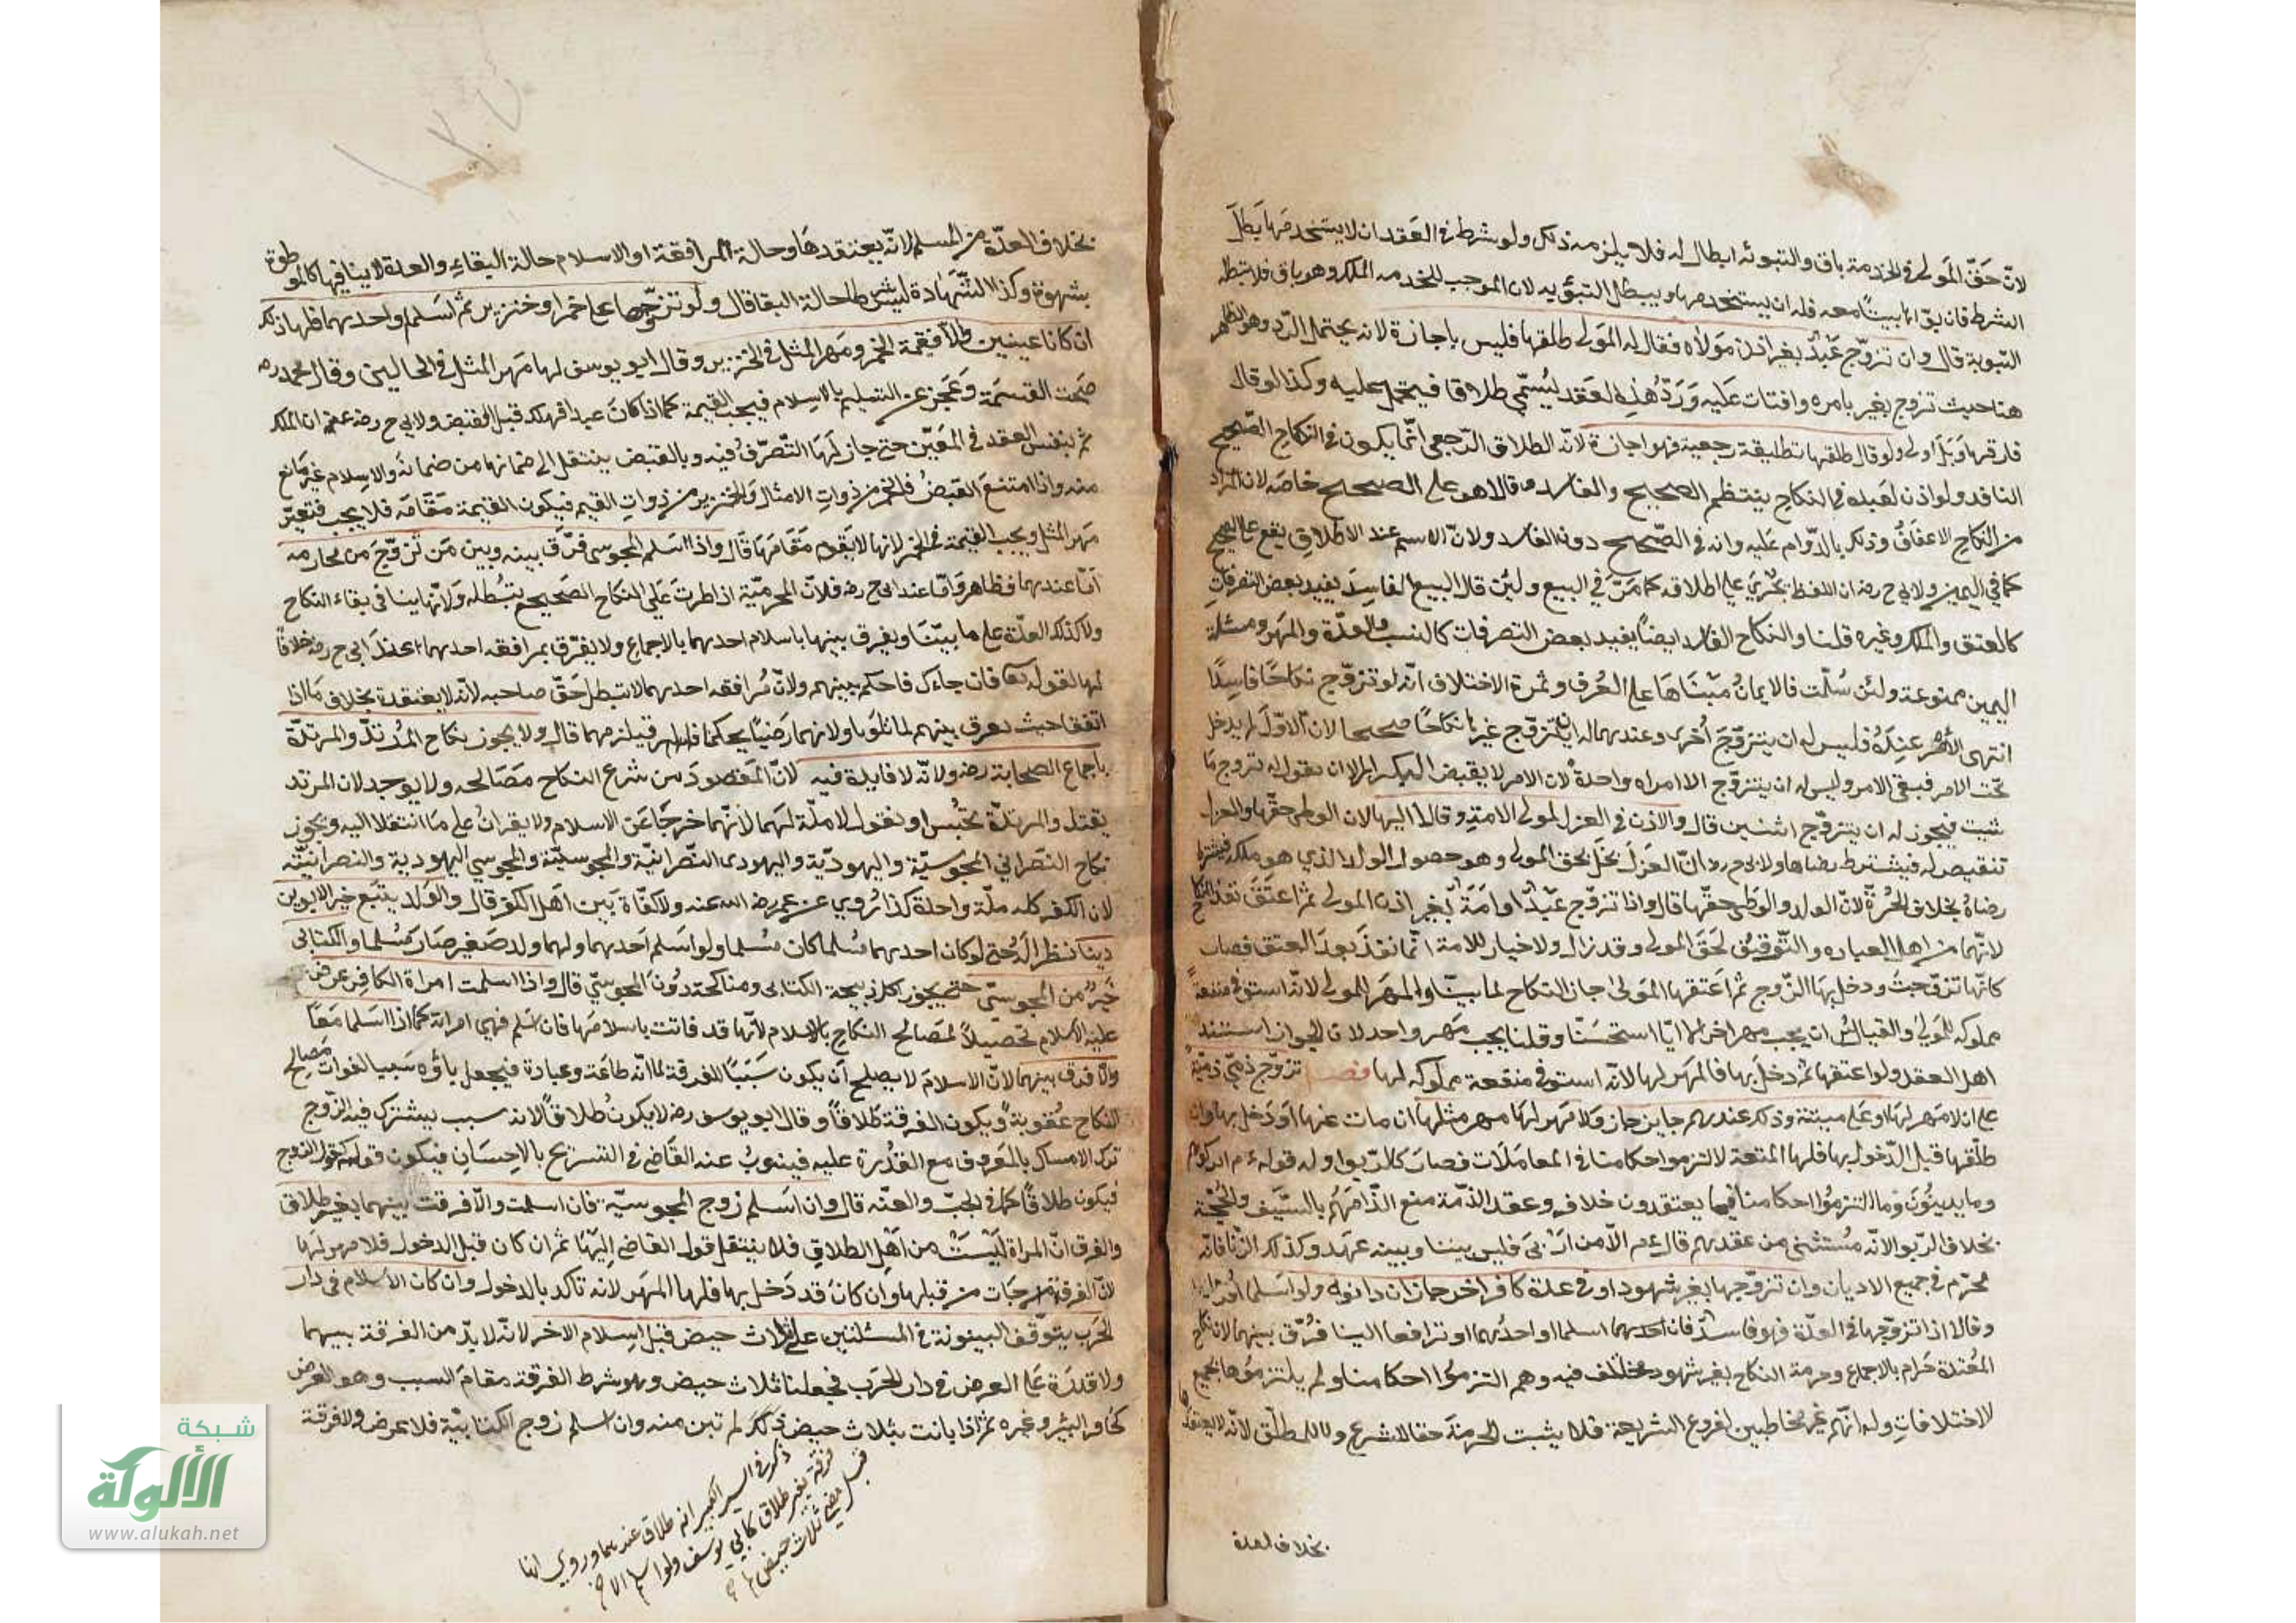 لانّ حَقّ المَولى في الخدمة باق والتبوئه ابطال له فلا يلزمه ذلك ولو شرط في العَقد ان لا يستخدمَها بَطلَ
الشرط فان بوّاها بيتًا معه فله ان يستخدمها ويبطل التبؤيه لان الموجب للخدمه الملك وهو باق فلا تبطله
التبوية قال وان تزوّج عَبْدٌ بغير اذن مَولاه فقال له المَولى طلقها فليس باجازة لانه يحتمل الردّ وهو الظاهر
هنا حيث تزوج بغير بامره وافتات عَليه وَرَدّ هٰذا العَقد يُسَمّى طلاقا فيحمل عليه وكذا لو قال
فارقها وَبَل اولى ولو قال طلقها تطليقة رجعية فهو اجازة لانّه الطلاق الرّجعى انّما يكون في النكاح الصّحيح
النافد ولو اذن لعبده في النكاح ينتظم الصحيح والفاسد وقالا هو على الصحيح خاصَه لان المراد
من النكاح الاعفَافُ وذلك بالدّوام عَليه وانه في الصّحيح دون الفاسد ولانّ الاسم عند الاطلاق يقع على الصحيح
كما في اليمين ولابى ح رضه ان اللفظ يَجْرَي على اطلاقه كما مَرّ في البيع ولئن قال البيع الفاسِدَ يفيد بعض التصرفات
كالعتق والملك وغيره قلنا والنكاح الفاسد ايضًا يفيد بعض التصرفات كالنسب والعدّة والمَهر ومسئلة
اليمين ممنوعة ولئن سُلّمت فالايمانُ مبْناهَا على العُرف وثمرة الاختلاف انّه لو تزوّج نكاحًا فاسِدًا
انتهى الأمر عنِدَهُ فليس له ان يتزوّجَ أخرى وعندهما له ان يتزوّج غيرها نكاحًا صحيحا لانّ الاوّل لم يدخل
تحت الامر فبقى الامر وليس له ان يتزوّج الا امراه واحدة لان الامر لا يقبض التكرار الا ان يقول له تزوج مَا
شيت فيجوز له ان يتزوّج اثنين قال والاذن في العزل لمولى الامةِ وقالا اليها لان الوطى حقّها والعزل
تنقيص له فيشترط رضاها ولابى ح ره انّ العَزلَ يخلّ بحق المولى وهو حصول الولد الذي هو ملكه فيشترط
رضاهُ بخلاف الحُرّة لانّ الولد والوَطى حقّها قال واذا تزوّج عَبْدٌ او امَةٌ بغير اذن المولى ثم اعتق نفذ النكاح
لانّهما من اهل العباره والتّوقيف لحَقّ المولى وقد زال ولا خيار للامة انّما نفذ بعدَ العتق فصار
كانّها تزوّجت ودخل بهَا الزّوج ثم اَعتقها المَولى جاز النكاح لما بيّنا والمهَر للمولى لانّه استوفى منفعةً
مملوكه للمَولى والقياس ان يجب مهر اخر لما ايّا استحسَنّا وقلنا يجب مَهر واحد لان الجواز استند الى
اهل العقد ولو اعتقها ثم دخلَ بها فالمَهر لها لانّه استوفى منفعة مملوكه لها فصـل تزوّج ذمّى ذمّيةً
على ان لا مَهر لها او عَلى ميتة وذلك عندهم جايز جاز وَلا مَهر لهَا مهر مثلها ان مات عنها او دَخل بها وان
طلّقها قبل الدّخول بها فلها المتعة لا التزموا احكامنا في المعامَلات فصارَ كالرّبوا وله قوله ع م اتركوهم
وما يدينُونَ وَما التزمُوا احكامنا فيما يعتقدون خلافه وعقد الذمّة منع الذامَهُم بالسّيَف والحُجّة
بخلاف الرّبوا لانّه مُستثنى من عقدهم قال عم الاّ من ارْبىَ فليس بيننا وبينه عَهد وكذلك الزنا فانّه
محرّم في جميع الاديان وان تزوّجها بغير شهود او في عدة كافر اخر جاز ان دانوه ولو اسلما اُقرّا
وقالا اذا تزوّجها في العدّة فهو فاسدٌ فان احدهما اسلما او احدُهما او ترافعا الينا فُرّق بينهما لان نكاح
المُعتدة حَرام بالاجماع وحرمة النكاح بغير شهود مختلف فيه وهم التزمُوا احكامنا ولم يلتزموُها بجميع
لاختلافاتِ وله انّهم غير مخاطبين لفروع الشريعة فلا يثبت الحرمَة حقا للشرع ولا للمطلّق لانّه لا يعتقدُها
بخلاف العدة
بخلاف العدّة من المسلم لانّه يعتقدهَا وحالة المرافقة او الاسلام حالة البقاءِ والعدة لا ينافيها كالموطوة
بشهوة وكذا الشّهَادة ليسَ شرطا حالة البقا قال ولو تزوّجها على خمر او خنزير ثم اسَلما او احدهما فلها ذلك
ان كانا عينين والاّ فقيمة الخمر ومَهر المثل في الخنزير وقال ابو يوسف لها مَهر المثل في الحالين وقال محمد ره
صَحت القسمَة وَعَجز عن التسليم بالاسلام فيجب القيمة كما اذا كانَ عبدا فهلك قبل القبض ولابى ح رضه عنه ان الملك
ثم بنفس العقد في المعَيّن حتى جاز لهَا التّصرّفُ فيه وبالقبض ينتقل الى ضمانها من ضمانهَ والاسلام غير مَانع
منه واذا امتنعَ القبضُ فالخمر من ذواتِ الامثال وَالخنزير من ذواتِ القيم فيكون القيمة مَقامَه فلا يجب فتعيّن
مَهر المثل ويجب القيمة في الخمر لانها لا تقوم مَقامَهَا قال واذا اسَلم المجوسى فرّق بينه وبين مَن تزوّجَ من محارمه
اَمّا عندهما فظاهر وَامّا عند ابى ح رضه فلانّ المحرميّة اذا طرت عَلَى النكاح الصَحيح يُبْطله وَلانّها ينافى بقاء النكاح
ولا كذلك العدّة على ما بيّنّا ويفرق بينها باسلام احدهما بالاجماع ولا يفرّق بمرافقه احدهما عندَ ابى ح رضه خلافًا
لهما لقوله تعا فان جاءك فاحكم بينهم ولانّ مُرافقه احدهما لا تبطل حَقّ صاحبه لانّه لا يعتقدة بخلاف مَا اذا
اتفقا حيث يفرق بينهم لما تلونا ولانهما رَضيَا بحكمنا فيلزمهما قال ولا يجوز نكاح المُرتدّ والمرتدّة
باجماع الصحابة رضه ولانّه لا فايدة فيه لانّ المَقصودَ من شرع النكاح مَصَالحه ولا يوجد لان المرتد
يقتل والمرتدّة تُحبْس او نقول لا ملّة لهما لانّهما خرجَا عَن الاسلام ولا يقرانُ على مَا انتقلا اليه ويجوز
نكاح النصَرانى المجوسيّة واليهوديّة واليهودى النصّرانيّة والمجوسيّة والمجوسى اليهودية والنصرانيّة
لان الكفر كله ملّة واحدة كذا رُوي عن عمر رضه الله عنه ولا كفَاءة بَين اهل الكفر قال والوَلد يتبَع خير الابوين
دينًا نظرًا لَه حتى لو كان احدهما مُسلما كان مُسلما ولو اسَلم احَدهما ولهما ولد صَغير صَارَ مُسلما والكتابى
خيرٌ من المجوسىّ حتى يجوز اكل ذبيحة الكتابى ومناكحته دوُنَ المجوسيّ قال واذا اسلمت امراة الكافر عرض
عليه الاسلام تحصيلاً لمصَالح النكاح بالاسلام لانّها قد فاتت باسلامَها فان اسَلم فهى امراته كما اذا اسَلما مَعًا
والاّ فرق بينهما لانّ الاسلامَ لا يصلح اَن يكون سَبَبًا للفرقة لما انّه طاعَة وعبادة فيجعل باؤه سَببا لفوات مَصالح
النكاح عُقوبةً ويكون الفرقة طلاقاً وقال ابو يوسف رضه لا يكونُ طلاقاً لانه سبب يشترك فيه الزّوج
ترك الامساك بالمَعروف مع القُدرة عليه فينوبُ عنه القَاضى في التسريح بالاحِسَانِ فيكون قوله كقول الزوج
فيكون طلاقًا كما في الجبّ والعنّه قال وان اسَلم زوج المجوسيّة فان اسلمت والاّ فرقت بينهما بغير طلاق
والفرق انّ المراة ليَسَتْ من اهَل الطلاقِ فلا ينتقل قول القاضى اليْهَا ثم ان كان قبل الدخول فلا مهر لها
لانّ الفرقة جَات من قبلها وان كانَ قد دَخل بها فلها المهَر لانه تاكد بالدخول وان كان الاسلام في دار
الحرَب يتوقّف البينونة في المسئلتين على ثلاث حيض قبل اسِلام الاخر لانّه لا بدّ من الفرقة بينهما
ولا قدرَة على العرض في دار الحَرب فجعلنا ثلاث حيض وهو شرط الفرقة مقامَ السبب وهو العرض
كحافر البئر وغيره ثم اذا بانت بثلاث حيض لم تبن منه وان اسلم زوج الكتابيّة فلا عرض ولا فرقة
ذكر في السير الكبير انه طلاق عندهما وروي انها
فرقة بغير طلاق كابى يوسف ولو اسلم الاخر
قبل مضى ثلاث حيض
شبكة
الألوكة
www.alukah.net